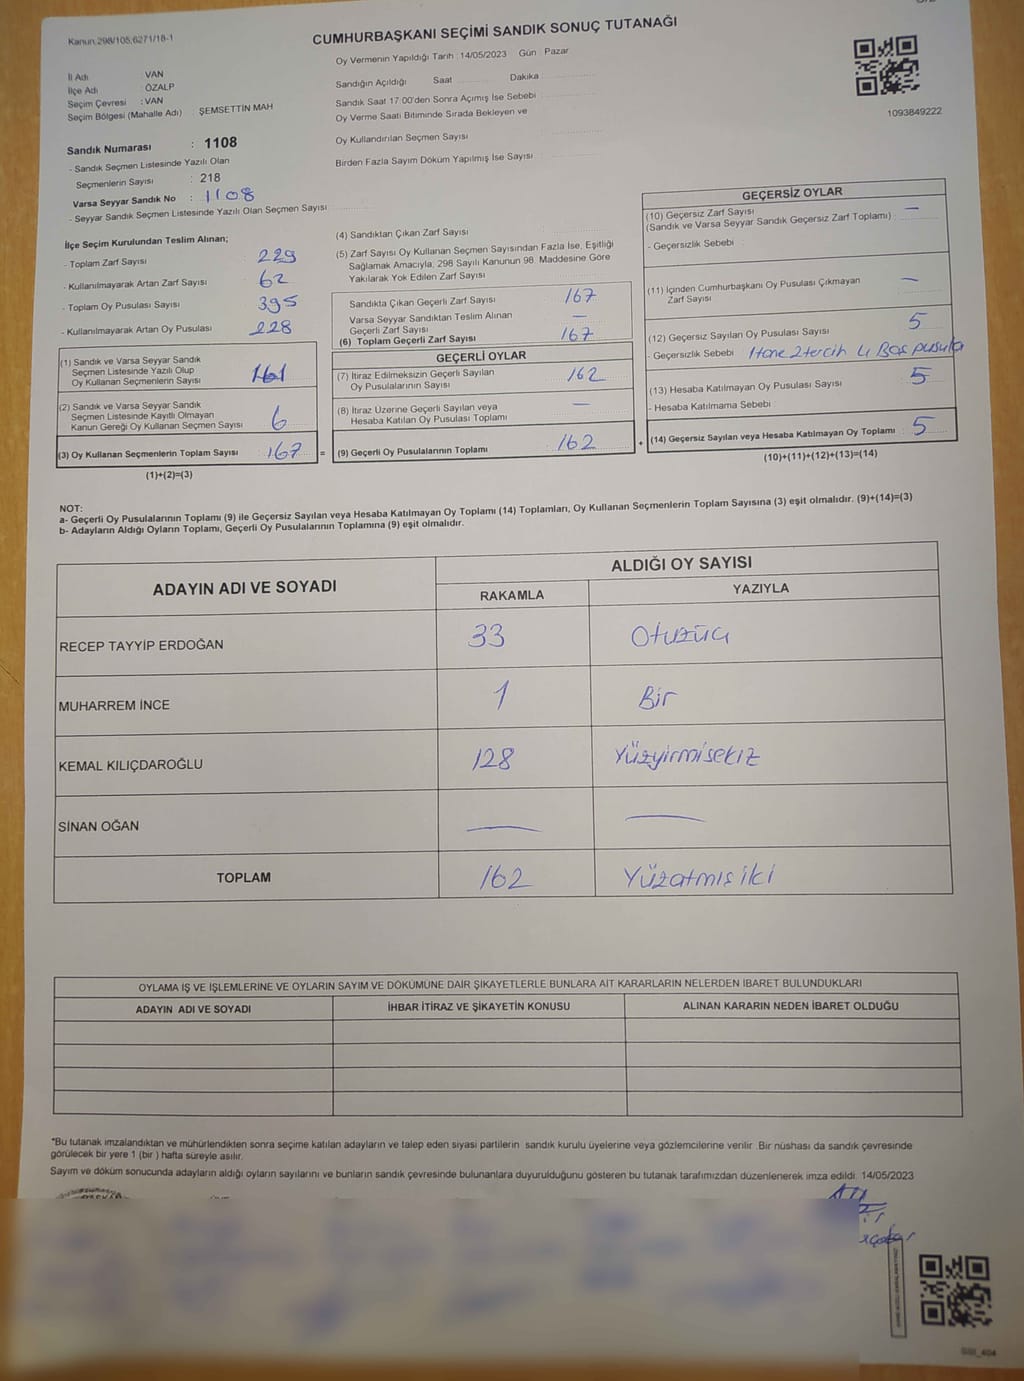 Kanun:298/105;6271/18-1
CUMHURBAŞKANI SEÇİMİ SANDIK SONUÇ TUTANAĞI
Oy Vermenin Yapıldığı Tarih : 14/05/2023 Gün : Pazar
1093849222
İl Adı VAN
İlçe Adı ÖZALP
Seçim Çevresi : VAN
Seçim Bölgesi (Mahalle Adı) : ŞEMSETTİN MAH
Sandığın Açıldığı Saat Dakika
Sandık Saat 17:00'den Sonra Açımış İse Sebebi :
Oy Verme Saati Bitiminde Sırada Bekleyen ve
Oy Kullandırılan Seçmen Sayısı
Birden Fazla Sayım Döküm Yapılmış İse Sayısı
Sandık Numarası : 1108
- Sandık Seçmen Listesinde Yazılı Olan
Seçmenlerin Sayısı : 218
Varsa Seyyar Sandık No : 1108
- Seyyar Sandık Seçmen Listesinde Yazılı Olan Seçmen Sayısı
İlçe Seçim Kurulundan Teslim Alınan;
- Toplam Zarf Sayısı 229
- Kullanılmayarak Artan Zarf Sayısı 62
- Toplam Oy Pusulası Sayısı 395
- Kullanılmayarak Artan Oy Pusulası 228
(1) Sandık ve Varsa Seyyar Sandık
Seçmen Listesinde Yazılı Olup
Oy Kullanan Seçmenlerin Sayısı 161
(2) Sandık ve Varsa Seyyar Sandık
Seçmen Listesinde Kayıtlı Olmayan
Kanun Gereği Oy Kullanan Seçmen Sayısı 6
(3) Oy Kullanan Seçmenlerin Toplam Sayısı 167 =
(1)+(2)=(3)
(4) Sandıktan Çıkan Zarf Sayısı
(5) Zarf Sayısı Oy Kullanan Seçmen Sayısından Fazla İse, Eşitliği
Sağlamak Amacıyla, 298 Sayılı Kanunun 98. Maddesine Göre
Yakılarak Yok Edilen Zarf Sayısı
Sandıkta Çıkan Geçerli Zarf Sayısı 167
Varsa Seyyar Sandıktan Teslim Alınan
Geçerli Zarf Sayısı —
(6) Toplam Geçerli Zarf Sayısı 167
GEÇERLİ OYLAR
(7) İtiraz Edilmeksizin Geçerli Sayılan
Oy Pusulalarının Sayısı 162
(8) İtiraz Üzerine Geçerli Sayılan veya
Hesaba Katılan Oy Pusulası Toplamı —
(9) Geçerli Oy Pusulalarının Toplamı 162 +
GEÇERSİZ OYLAR
(10) Geçersiz Zarf Sayısı —
(Sandık ve Varsa Seyyar Sandık Geçersiz Zarf Toplamı)
- Geçersizlik Sebebi
(11) İçinden Cumhurbaşkanı Oy Pusulası Çıkmayan
Zarf Sayısı —
(12) Geçersiz Sayılan Oy Pusulası Sayısı 5
- Geçersizlik Sebebi 1 tane 2 tercih 4 Boş pusula
(13) Hesaba Katılmayan Oy Pusulası Sayısı 5
- Hesaba Katılmama Sebebi
(14) Geçersiz Sayılan veya Hesaba Katılmayan Oy Toplamı 5
(10)+(11)+(12)+(13)=(14)
NOT:
a- Geçerli Oy Pusulalarının Toplamı (9) ile Geçersiz Sayılan veya Hesaba Katılmayan Oy Toplamı (14) Toplamları, Oy Kullanan Seçmenlerin Toplam Sayısına (3) eşit olmalıdır. (9)+(14)=(3)
b- Adayların Aldığı Oyların Toplamı, Geçerli Oy Pusulalarının Toplamına (9) eşit olmalıdır.
ADAYIN ADI VE SOYADI ALDIĞI OY SAYISI
RAKAMLA YAZIYLA
RECEP TAYYİP ERDOĞAN 33 Otuzüç
MUHARREM İNCE 1 Bir
KEMAL KILIÇDAROĞLU 128 Yüzyirmisekiz
SİNAN OĞAN — —
TOPLAM 162 Yüzatmış iki
OYLAMA İŞ VE İŞLEMLERİNE VE OYLARIN SAYIM VE DÖKÜMÜNE DAİR ŞİKAYETLERLE BUNLARA AİT KARARLARIN NELERDEN İBARET BULUNDUKLARI
ADAYIN ADI VE SOYADI İHBAR İTİRAZ VE ŞİKAYETİN KONUSU ALINAN KARARIN NEDEN İBARET OLDUĞU
*Bu tutanak imzalandıktan ve mühürlendikten sonra seçime katılan adayların ve talep eden siyasi partilerin sandık kurulu üyelerine veya gözlemcilerine verilir. Bir nüshası da sandık çevresinde
görülecek bir yere 1 (bir ) hafta süreyle asılır.
Sayım ve döküm sonucunda adayların aldığı oyların sayılarını ve bunların sandık çevresinde bulunanlara duyurulduğunu gösteren bu tutanak tarafımızdan düzenlenerek imza edildi. 14/05/2023